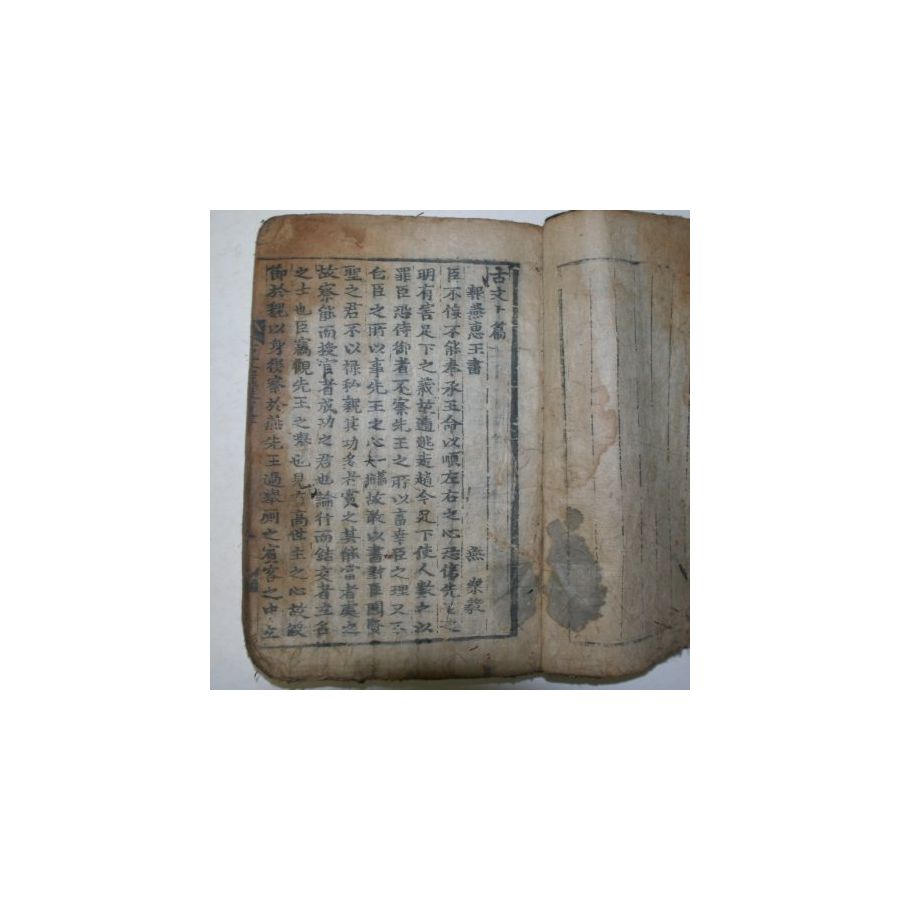 古文下篇
報燕惠王書 燕 樂毅
臣不佞不能奉承王命以順左右之心恐傷先王之
明有害足下之義故遁逃走趙今足下使人數之以
罪臣恐侍御者不察先王之所以畜幸臣之理又不
白臣之所以事先王之心故敢以書對臣聞賢
聖之君不以祿私親其功多者賞之其能當者處之
故察能而授官者成功之君也論行而結交者立名
之士也臣竊觀先王之擧也見有高世主之心故假
節於魏以身得察於燕先王過擧厠之賓客之中立